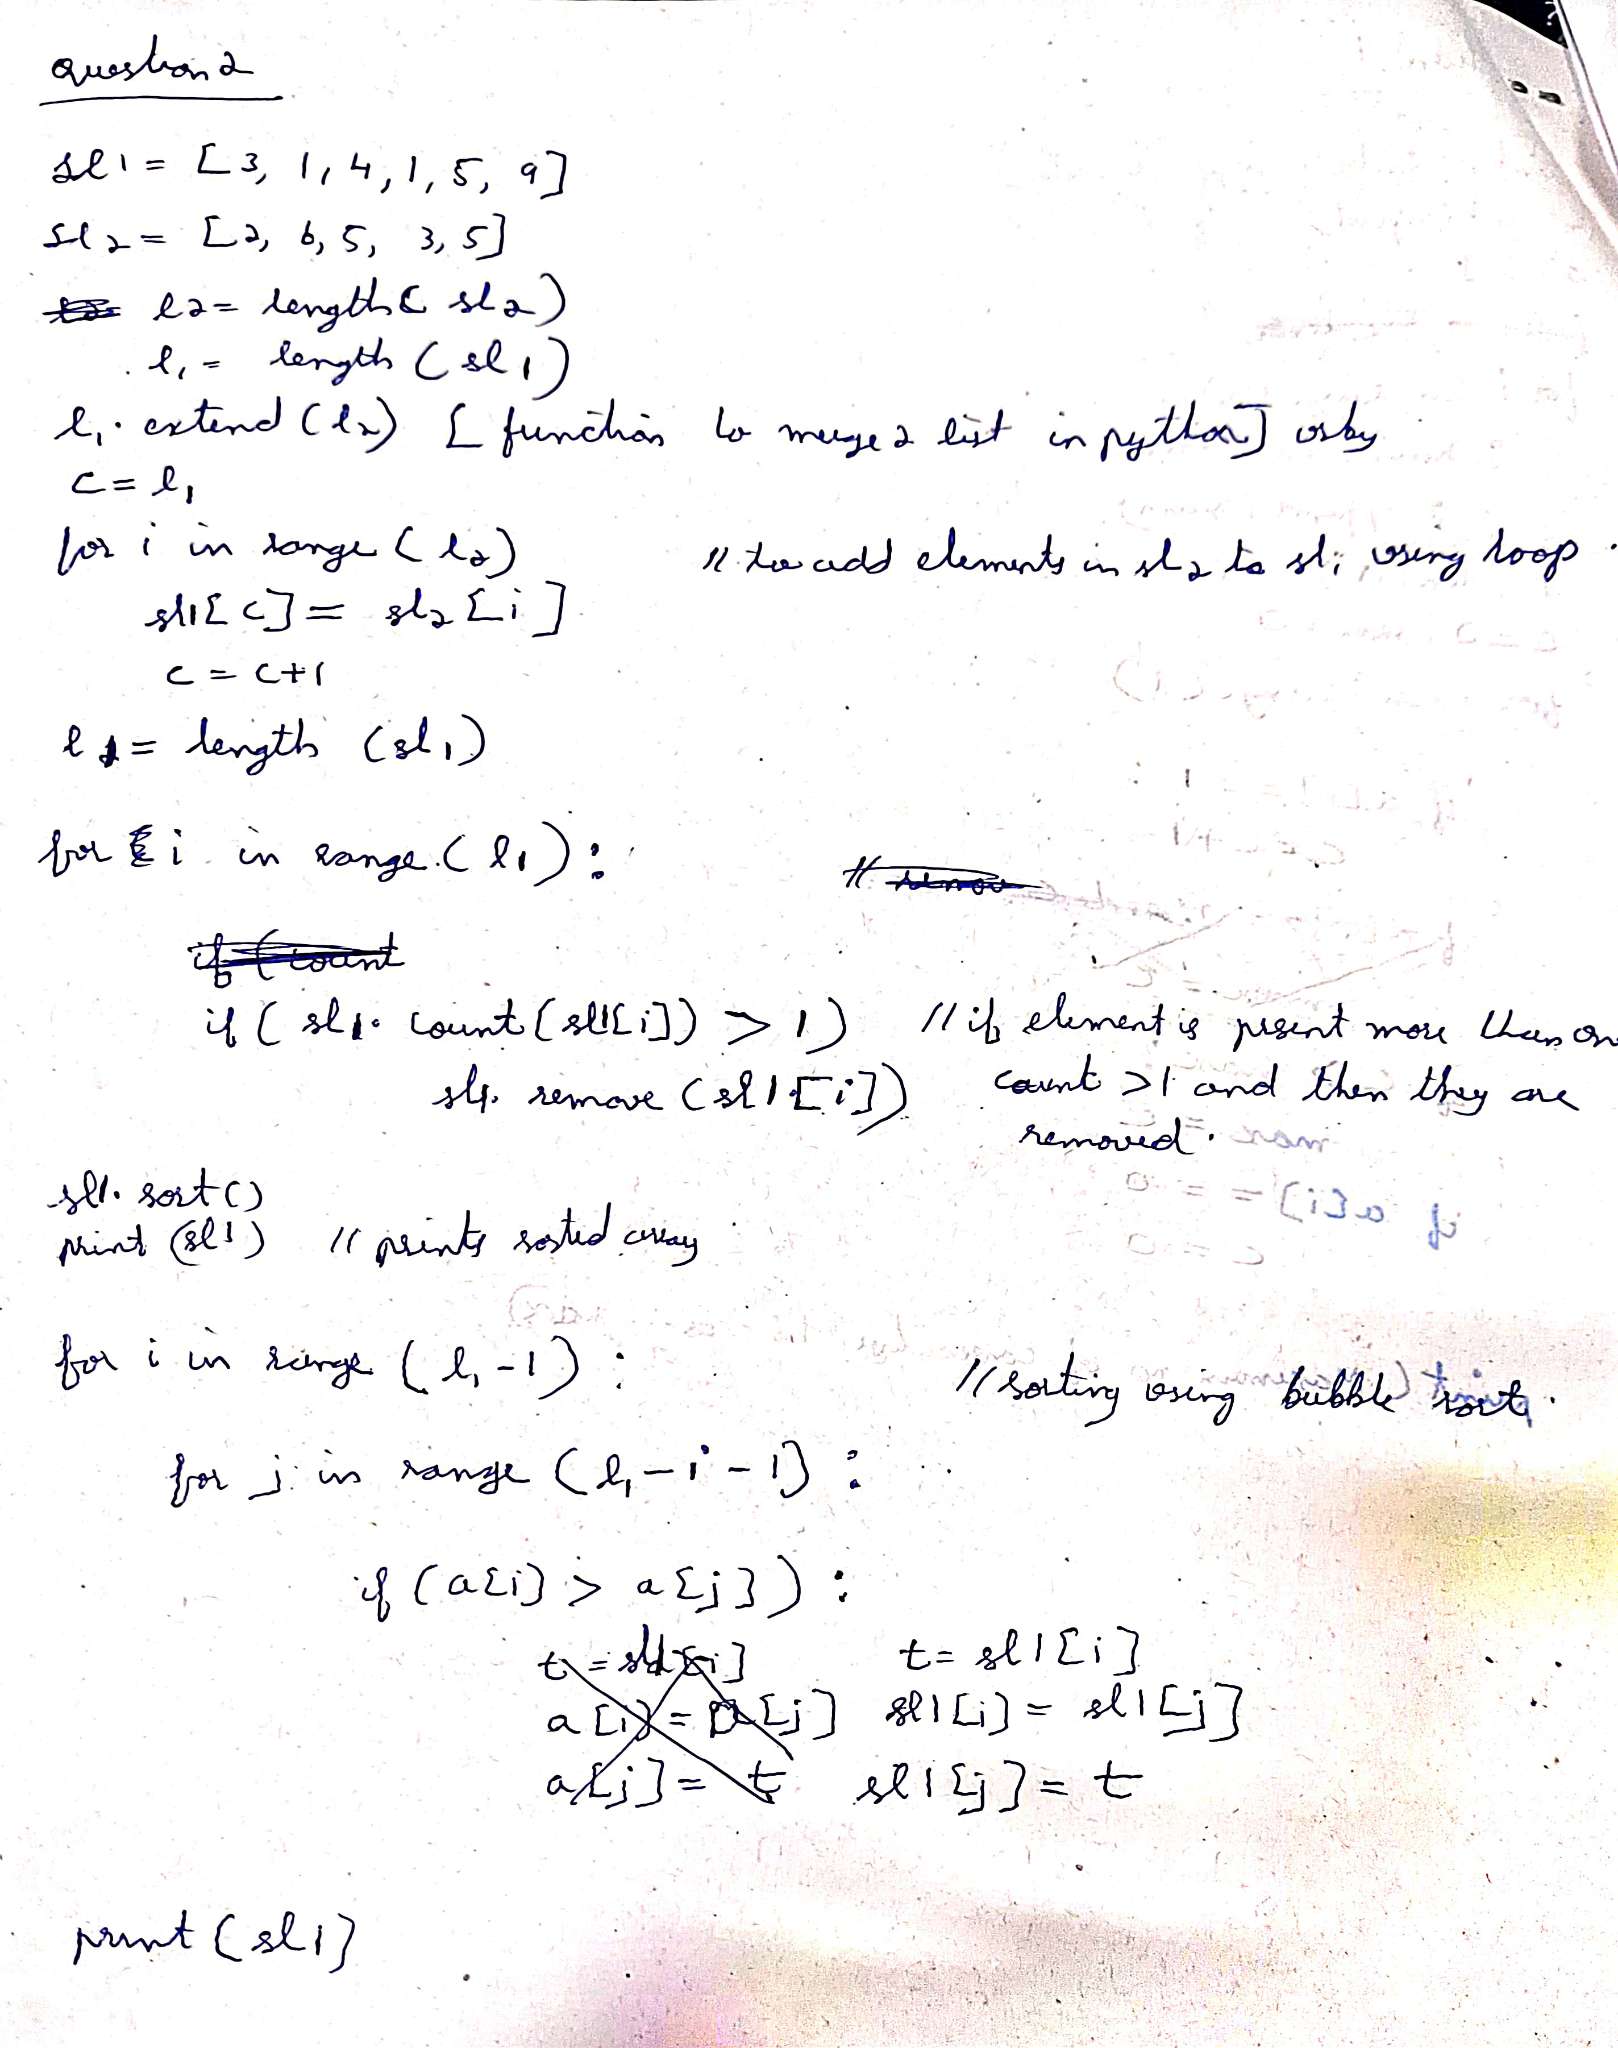 question 2
sl1 = [3, 1, 4, 1, 5, 9]
sl2 = [2, 6, 5, 3, 5]
l2 = length( sl2)
l1 = length (sl1)
l1. extend (l2) [ function to merge 2 list in python] or by
c = l1
for i in range (l2) // to add elements in sl2 to sl1 using loop.
sl1[c] = sl2[i]
c = c+1
l1 = length (sl1)
for i in range (l1) :
// remov
if (count
if ( sl1. count (sl1[i]) > 1) // if element is present more than on
sl1. remove (sl1[i]) count >1 and then they are
removed.
sl1. sort()
print (sl1) // prints sorted array
for i in range (l1-1) : // sorting using bubble sort.
for j in range (l1-i-1) :
if (a[i] > a[j]) :
t = sl1[i] t = sl1[i]
a[i] = a[j] sl1[i] = sl1[j]
a[j] = t sl1[j] = t
print (sl1)